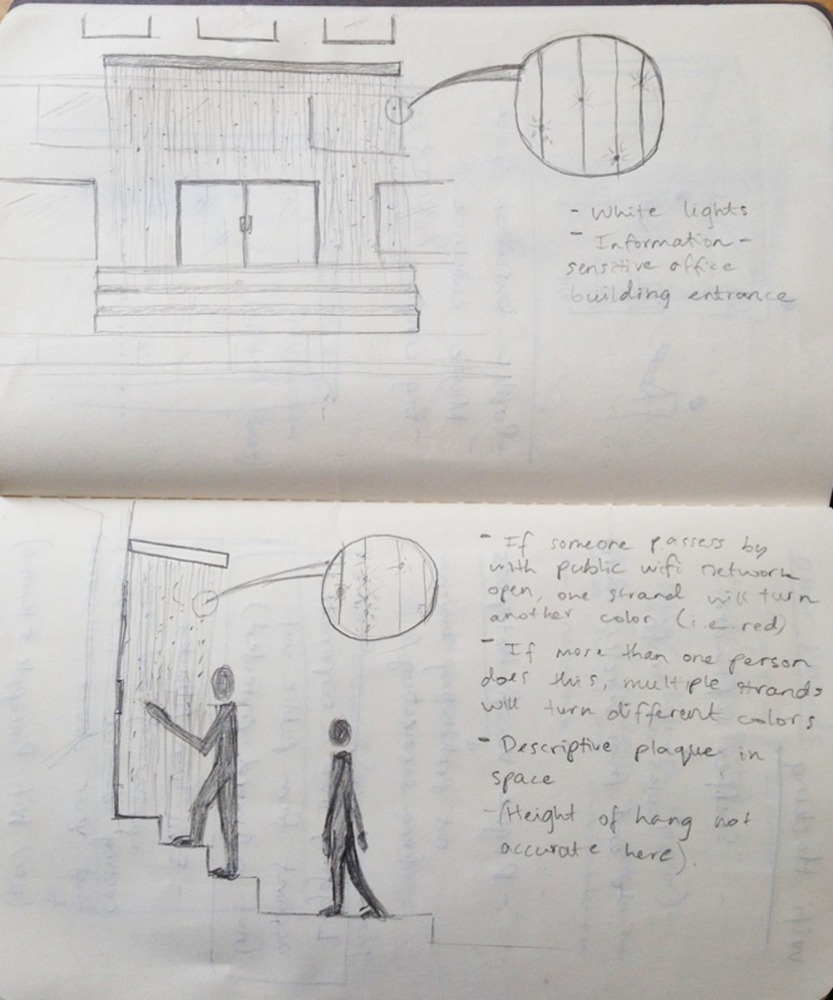 - White lights
- Information-
sensitive office
building entrance
- If someone passess by
with public wifi network
open, one strand will turn
another color (i.e. red)
- If more than one person
does this, multiple strands
will turn different colors
- Descriptive plaque in
space
- (Height of hang not
accurate here).